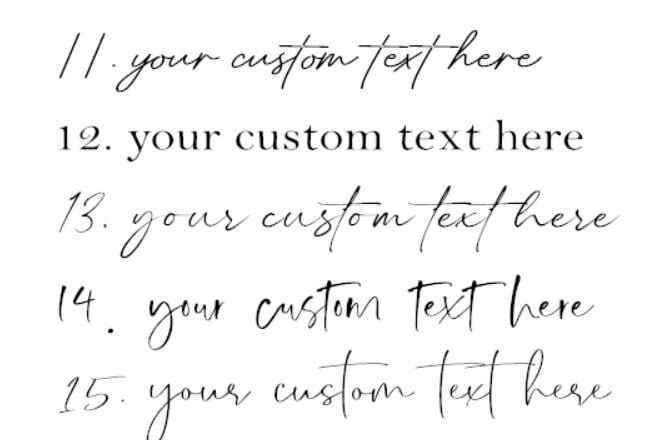 11. your custom text here
12. your custom text here
13. your custom text here
14. your custom text here
15. your custom text here